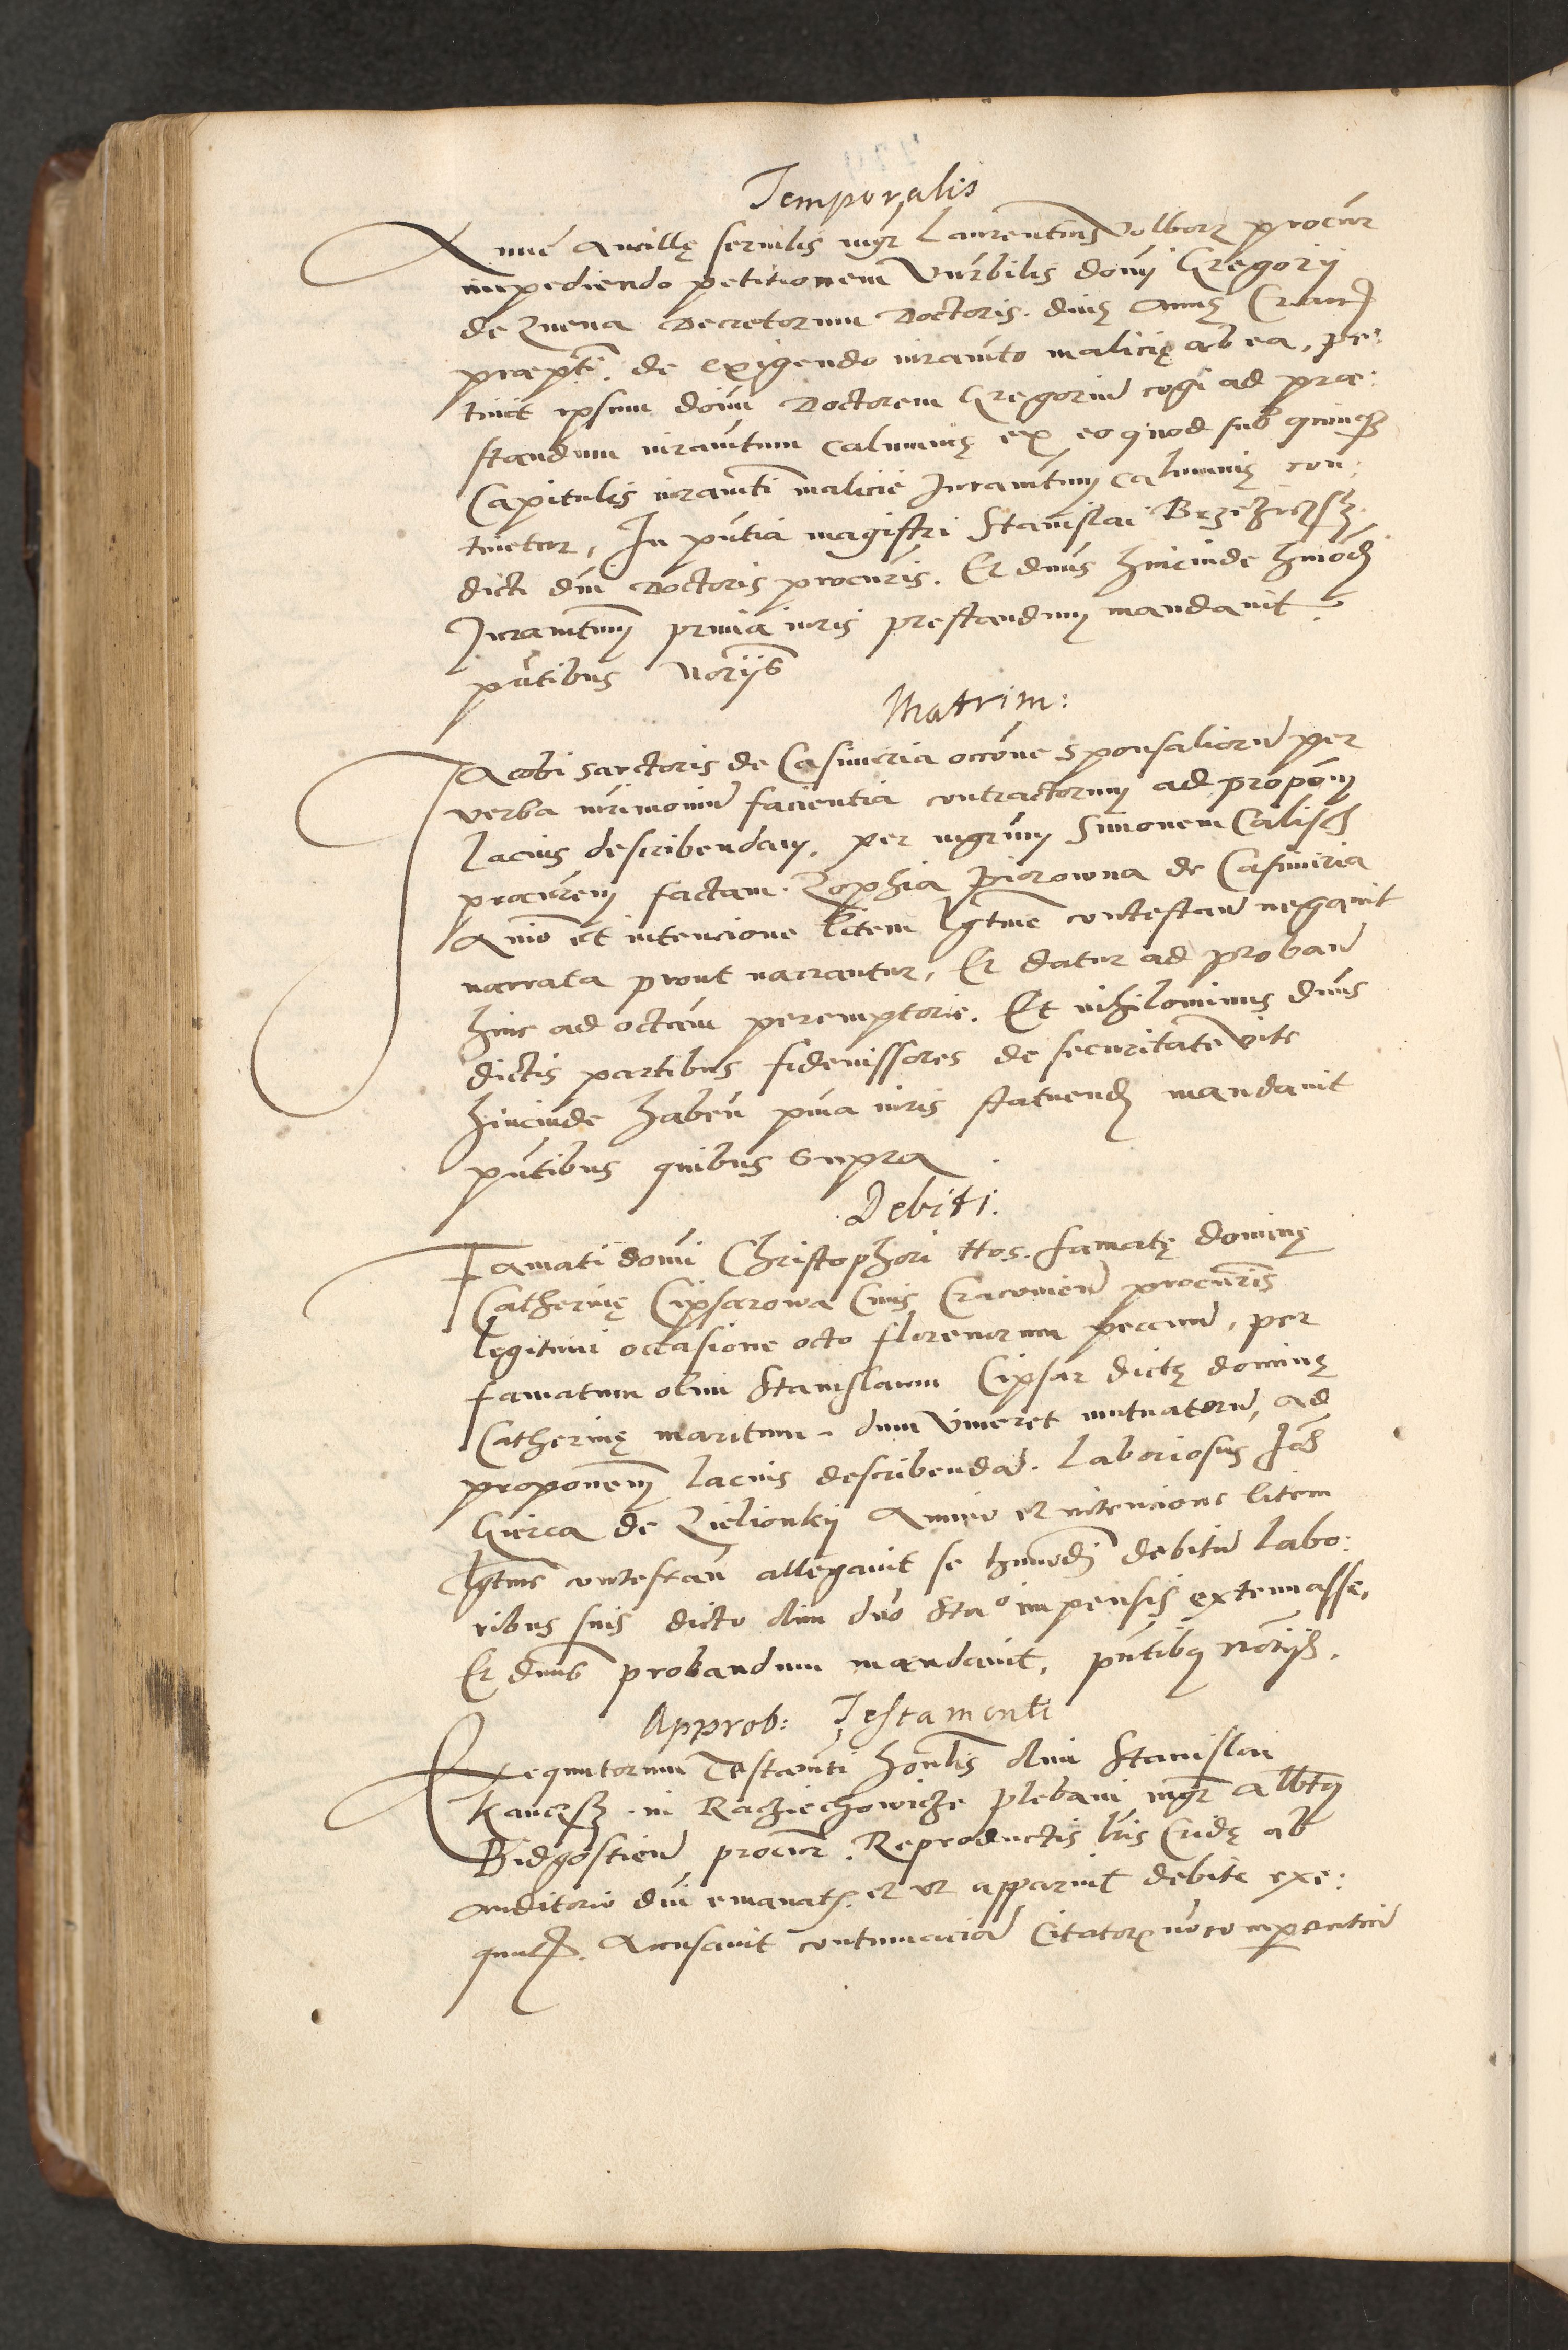 Temporalis
Anne Ancille servilis mgr Laurentius Volborz procur
impediendo petitionem Vnrbilis domi Gregorii
de Decretorum Doctoris
de exigendo iuramto malicie ab ea, pe:
tiuit ipsum doim Doctorem Gregoriu cogi ad prae:
standum iuramtum Calumnie ex eo quod sub
Capitulis iuramti malicie Juramtum calumnie con:
tinetur, In pntia magistri Stanislai
dicti dni Doctoris procuris. Et dnus hincinde hmodi
Juramtum iuris prestandum mandauit
pntibus Noriis
Matrim:
Jacobi sartoris de Casimiria occone sponsalioru per
verba mrimoniu facientia contractorum ad propom
lacius describendam, per mgrum Simonem Calisch
procurem factam. Zophia Piorowna de Casimiria
Anio et intencione litem lgtme contestan negauit
narrata prout narrantur, Et datur ad proban
hinc ad octam peremptorie. Et nihilominus dnus
dictis partibus fideiussores de securitate vite
hincinde haben pma iuris statuend mandauit
pntibus quibus supra
Debiti.
Famati domi Christophori Hos. famate domine
Catherine Cipsarowa Ciuis Cracouien procuris
legitimi occasione octo florenorum pecciun, per
famatum olim Stanislaum Cipsar dicte domine
Catherine maritum dum viueret mutuatoru, ad
proponem lacius describenda. Laboriosus
Gierca de Zielionky Animo et intencione litem
lgtme contestan allegauit se hmodi debitu labo:
ribus suis dicto olim dno Stao impensis extenuasse,
Et dnus probandum mandauit, pntibus Noriis.
Approb: Testamenti
Exequutorum Testamti honlis olim Stanislai
in Raczięchowicze plebani mgr Albtus
Bidgostien procur. Reproductis lris Cride ab
auditorio dni emanatis et vt apparuit debite exe:
quut. Accusauit contumacia Citator no comparentiu